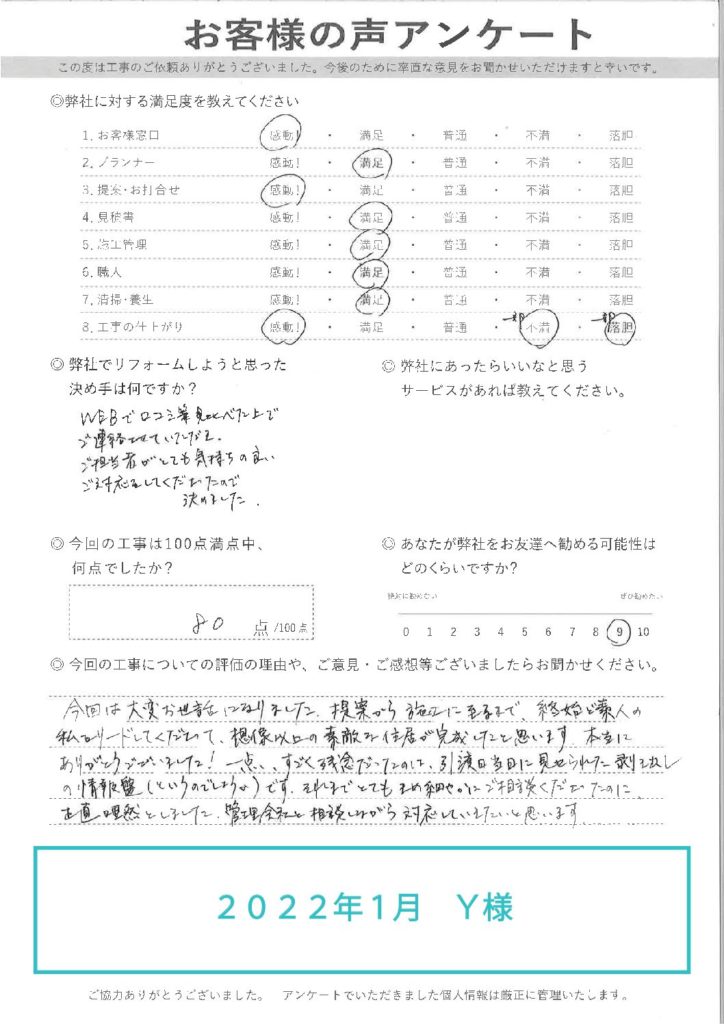 お客様の声アンケート
この度は工事のご依頼ありがとうございました。今後のために率直な意見をお聞かせいただけますと幸いです。
◎弊社に対する満足度を教えてください
1. お客様窓口 感動! ・ 満足 ・ 普通 ・ 不満 ・ 落胆
2. プランナー 感動! ・ 満足 ・ 普通 ・ 不満 ・ 落胆
3. 提案・お打合せ 感動! ・ 満足 ・ 普通 ・ 不満 ・ 落胆
4. 見積書 感動! ・ 満足 ・ 普通 ・ 不満 ・ 落胆
5. 施工管理 感動! ・ 満足 ・ 普通 ・ 不満 ・ 落胆
6. 職人 感動! ・ 満足 ・ 普通 ・ 不満 ・ 落胆
7. 清掃・養生 感動! ・ 満足 ・ 普通 ・ 不満 ・ 落胆
8. 工事の仕上がり 感動! ・ 満足 ・ 普通 ・ 一部 不満 ・ 一部 落胆
◎ 弊社でリフォームしようと思った
決め手は何ですか？
WEBで口コミ等見比べた上で
ご連絡させていただき、
ご担当者がとても気持ちの良い
ご対応をしてくださったので
決めました。
◎ 弊社にあったらいいなと思う
サービスがあれば教えてください。
◎ 今回の工事は100点満点中、
何点でしたか？
80 点 /100点
◎ あなたが弊社をお友達へ勧める可能性は
どのくらいですか？
絶対に勧めない ぜひ勧めたい
0 1 2 3 4 5 6 7 8 9 10
◎ 今回の工事についての評価の理由や、ご意見・ご感想等ございましたらお聞かせください。
今回は大変お世話になりました。提案から施工に至るまで、終始ど素人の
私をリードしてくださって、想像以上の素敵な住居が完成したと思います。本当に
ありがとうございました！一点、すごく残念だったのは、引渡日当日に見せられた剥き出し
の情報盤（というのでしょうか）です。それまでとてもきめ細やかにご相談くださったのに、
正直唖然としました。管理会社と相談しながら対応していきたいと思います。
２０２２年１月 Ｙ様
ご協力ありがとうございました。 アンケートでいただきました個人情報は厳正に管理いたします。